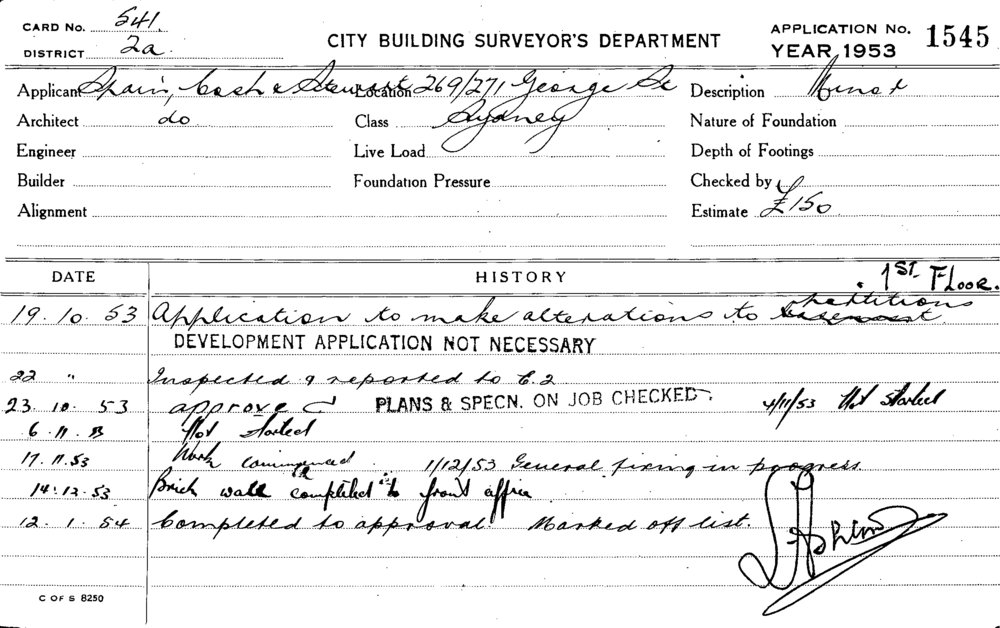 CARD No. 541.
DISTRICT 2a.
CITY BUILDING SURVEYOR'S DEPARTMENT
APPLICATION No. 1545
YEAR 1953
Applicant Spain, Cosh & Stewart Location 269/271 George St Description Minor
Architect do Class Sydney Nature of Foundation
Engineer Live Load Depth of Footings
Builder Foundation Pressure Checked by
Alignment Estimate £150
DATE HISTORY 1ST. FLOOR.
19.10.53 Application to make alterations to partitions
DEVELOPMENT APPLICATION NOT NECESSARY
22 " Inspected & reported to E.2
23.10.53 approved PLANS & SPECN. ON JOB CHECKED. 4/11/53 Not started
6.11.53 Not started
17.11.53 Work commenced 1/12/53 General fixing in progress.
14.12.53 Brick wall completed to front office
12.1.54 Completed to approval. Marked off list.
C OF S 8250